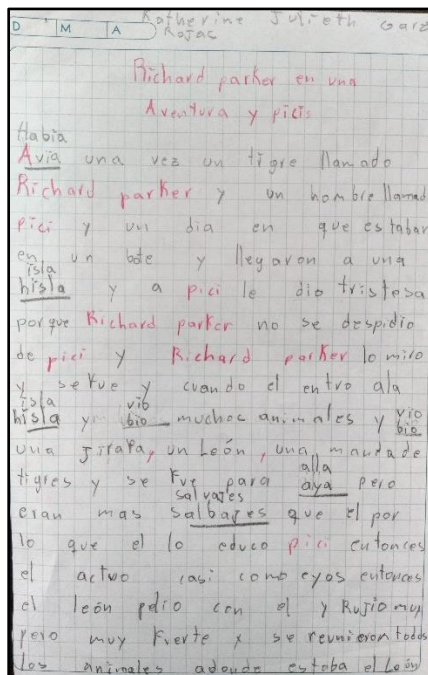 Katherine Julieth Garz
Rojas
D M A
Richard parker en una
Aventura y picis
Habia
Avia una vez un tigre llamado
Richard parker y un hombre llamad
pici y un dia en que estabar
en un bote y llegaron a una
isla
hisla y a pici le dio tristesa
porque Richard parker no se despidio
de pici y Richard parker lo miro
y se fue y cuando el entro ala
isla vio
hisla y bio muchoc animales y vio
bio
una jirafa, un León, una manda de
alla
tigres y se fue para aya pero
salvajes
eran mas salbajes que el por
lo que el lo educo pici entonces
el actuo casi como eyos entonces
el león pelio con el y Rujio muy
pero muy fuerte y se reunieron todos
Los animales adonde estaba el León